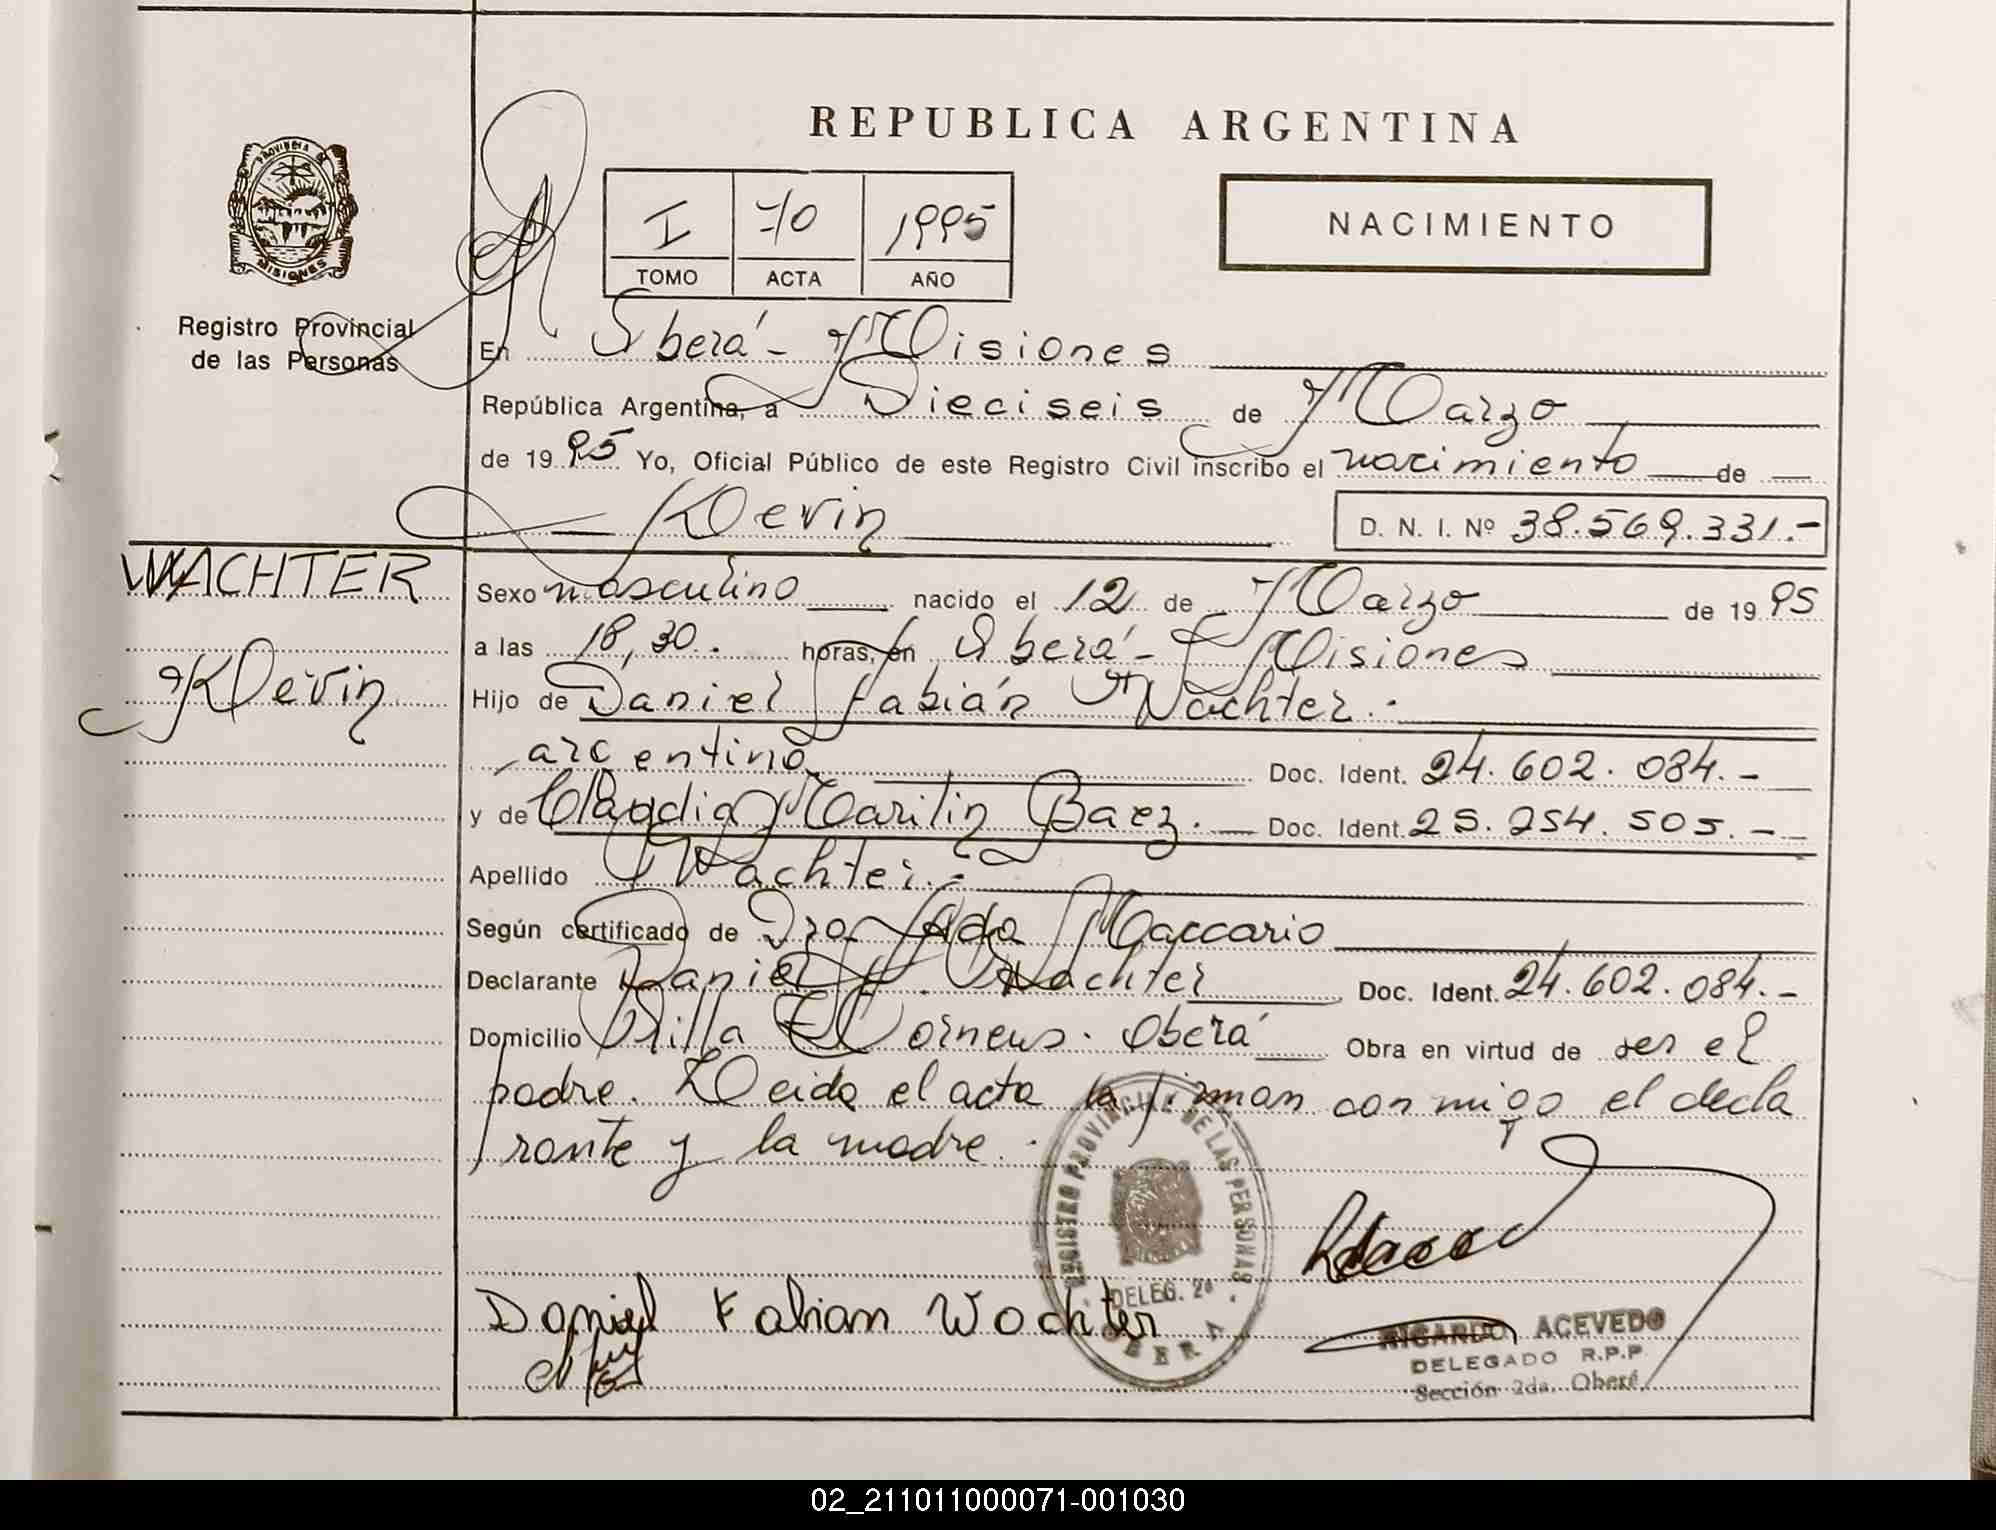 REPUBLICA ARGENTINA
PROVINCIA DE MISIONES
I 70 1995
TOMO ACTA AÑO
NACIMIENTO
Registro Provincial
de las Personas
En Oberá - Misiones
República Argentina, a Dieciseis de Marzo
de 1995 Yo, Oficial Público de este Registro Civil inscribo el nacimiento de
Kevin D. N. I. Nº 38.569.331.-
WACHTER
Kevin
Sexo masculino nacido el 12 de Marzo de 1995
a las 18,30. horas, en Oberá - Misiones
Hijo de Daniel Fabián Wachter.-
argentino Doc. Ident. 24.602.084.-
y de Claudia Marilin Baez. Doc. Ident. 25.254.505.-
Apellido Wachter.-
Según certificado de Dra. Ada Maccario
Declarante Daniel F. Wachter Doc. Ident. 24.602.084.-
Domicilio Villa Corneus. Oberá Obra en virtud de ser el
padre. Leida el acta la firman conmigo el decla
rante y la madre.
REGISTRO PROVINCIAL DE LAS PERSONAS
DELEG. 2ª
OBERA
Daniel Fabian Wachter
RICARDO ACEVEDO
DELEGADO R.P.P.
Sección 2da. Oberá
02_211011000071-001030